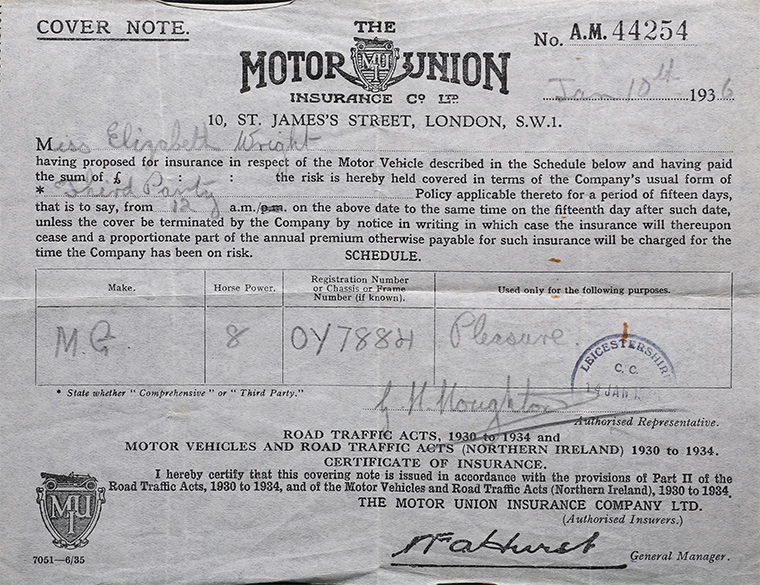 COVER NOTE.
THE
MOTOR MU UNION
INSURANCE Co LTD.
No. A.M. 44254
Jan 10th 1936
10, ST. JAMES'S STREET, LONDON, S.W.1.
Miss Elizabeth Wright
having proposed for insurance in respect of the Motor Vehicle described in the Schedule below and having paid
the sum of £ : : the risk is hereby held covered in terms of the Company's usual form of
* Third Party Policy applicable thereto for a period of fifteen days,
that is to say, from 12 a.m./p.m. on the above date to the same time on the fifteenth day after such date,
unless the cover be terminated by the Company by notice in writing in which case the insurance will thereupon
cease and a proportionate part of the annual premium otherwise payable for such insurance will be charged for the
time the Company has been on risk. SCHEDULE.
Make. Horse Power. Registration Number or Chassis or Frame Number (if known). Used only for the following purposes.
M.G. 8 OY7884 Pleasure.
LEICESTERSHIRE
C. C.
14 JAN
* State whether "Comprehensive" or "Third Party."
G H Houghton
Authorised Representative.
ROAD TRAFFIC ACTS, 1930 to 1934 and
MOTOR VEHICLES AND ROAD TRAFFIC ACTS (NORTHERN IRELAND) 1930 to 1934.
CERTIFICATE OF INSURANCE.
I hereby certify that this covering note is issued in accordance with the provisions of Part II of the
Road Traffic Acts, 1930 to 1934, and of the Motor Vehicles and Road Traffic Acts (Northern Ireland), 1930 to 1934.
THE MOTOR UNION INSURANCE COMPANY LTD.
(Authorised Insurers.)
MU
I
7051—6/35
General Manager.